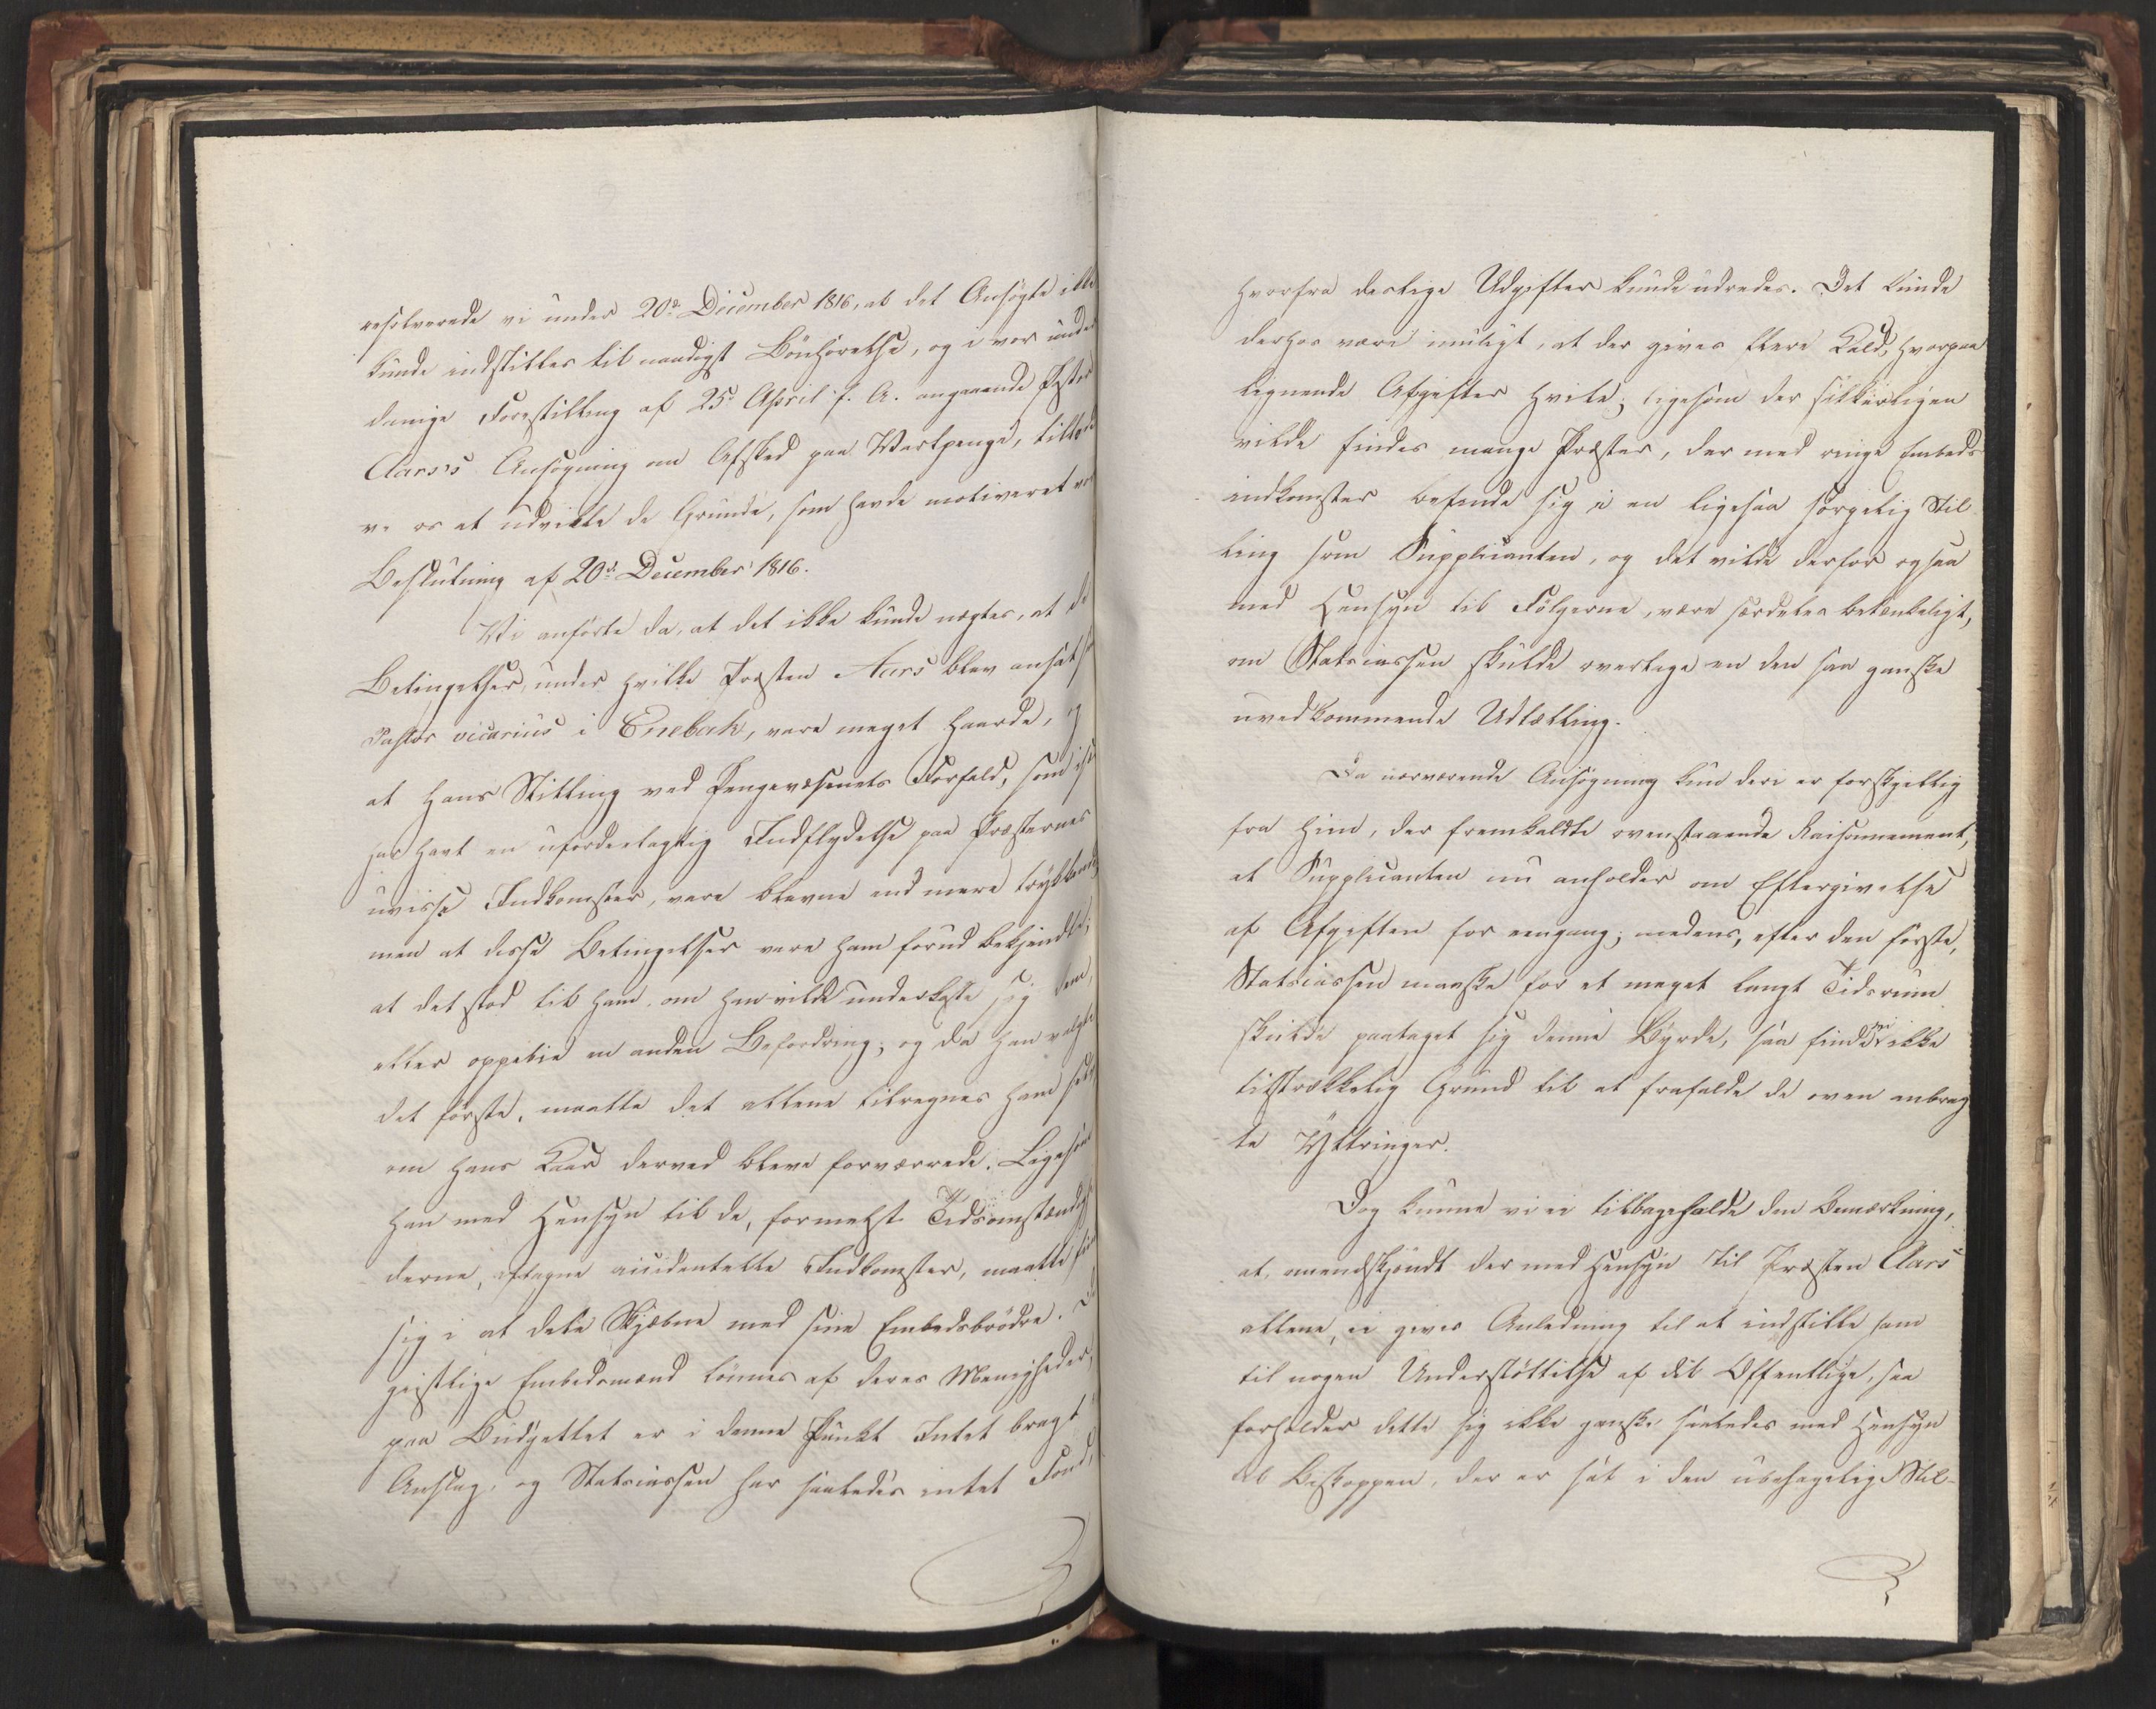 resolverede vi under 20de December 1816, at det Ansøgte ikke
kunde indstilles til naadigst Bönhörelse, og i vor under
danige Forestilling af 25de April f. A. angaaende Præsten
Aars's Ansøgning om Afsked paa Vartpenge, tillode
vi os at udvikle de Grunde, som havde motiveret vor
Beslutning af 20de December 1816.
Vi anførte da, at det ikke kunde negtes, at de
Betingelser, under hvilke Præsten Aars blev ansat som
Pastor vicarius i Enebak, vare meget haarde, og
at hans Stilling ved Pengevæsenets Forfald, som især
har havt en ufordeelagtig Indflydelse paa Præsternes
uvisse Indkomster, vare blevne end mere trykkende,
men at disse Betingelser vare ham forud bekjendte;
at det stod til ham, om han vilde underkaste sig dem,
eller oppebie en anden Befordring; og da han valgte
det første, maatte det allene tilregnes ham selv,
om hans Kaar derved bleve forværrede. Ligesom
han med Hensyn til de, formedelst Tidsomstændighe
derne, aftagne accidentelle Indkomster, maatte finde
sig i at dele Skjæbne med sine Embedsbrödre. De
geistlige Embedsmænd lønnes af deres Menigheder,
paa Budgettet er i denne Punkt Intet bragt i
Anslag, og Statscassen har saaledes intet Fond,
hvorfra deslige Udgifter kunde udredes. Det kunde
derhos være muligt, at der gives flere Kald, hvorpaa
lignende Afgifter hvile; ligesom der sikkerligen
vilde findes mange Præster, der med ringe Embeds
indkomster befinde sig i en ligesaa sørgelig Stil-
ling som Supplicanten, og det vilde derfor ogsaa
med Hensyn til Følgerne, være særdeles betænkeligt,
om Statscassen skulde overtage en den saa ganske
uvedkommende Udtælling.
Da nærværende Ansøgning kun deri er forskjellig
fra hiin, der fremkaldte ovenstaaende Raisonnement,
at Supplicanten nu anholder om Eftergivelse
af Afgiften for eengang; medens, efter den første,
Statscassen maaske for et meget langt Tidsrum
skulde paataget sig denne Byrde, saa finde vi ikke
tilstrækkelig Grund til at frafalde de oven anbrag
te Yttringer.
Dog kunne vi ei tilbageholde den Bemærkning,
at, omendskjöndt der med Hensyn til Præsten Aars
allene, ei gives Anledning til at indstille ham
til nogen Understøttelse af det Offentlige, saa
forholder dette sig ikke ganske saaledes med Hensyn
til Biskoppen, der er sat i den ubehagelige Stil-